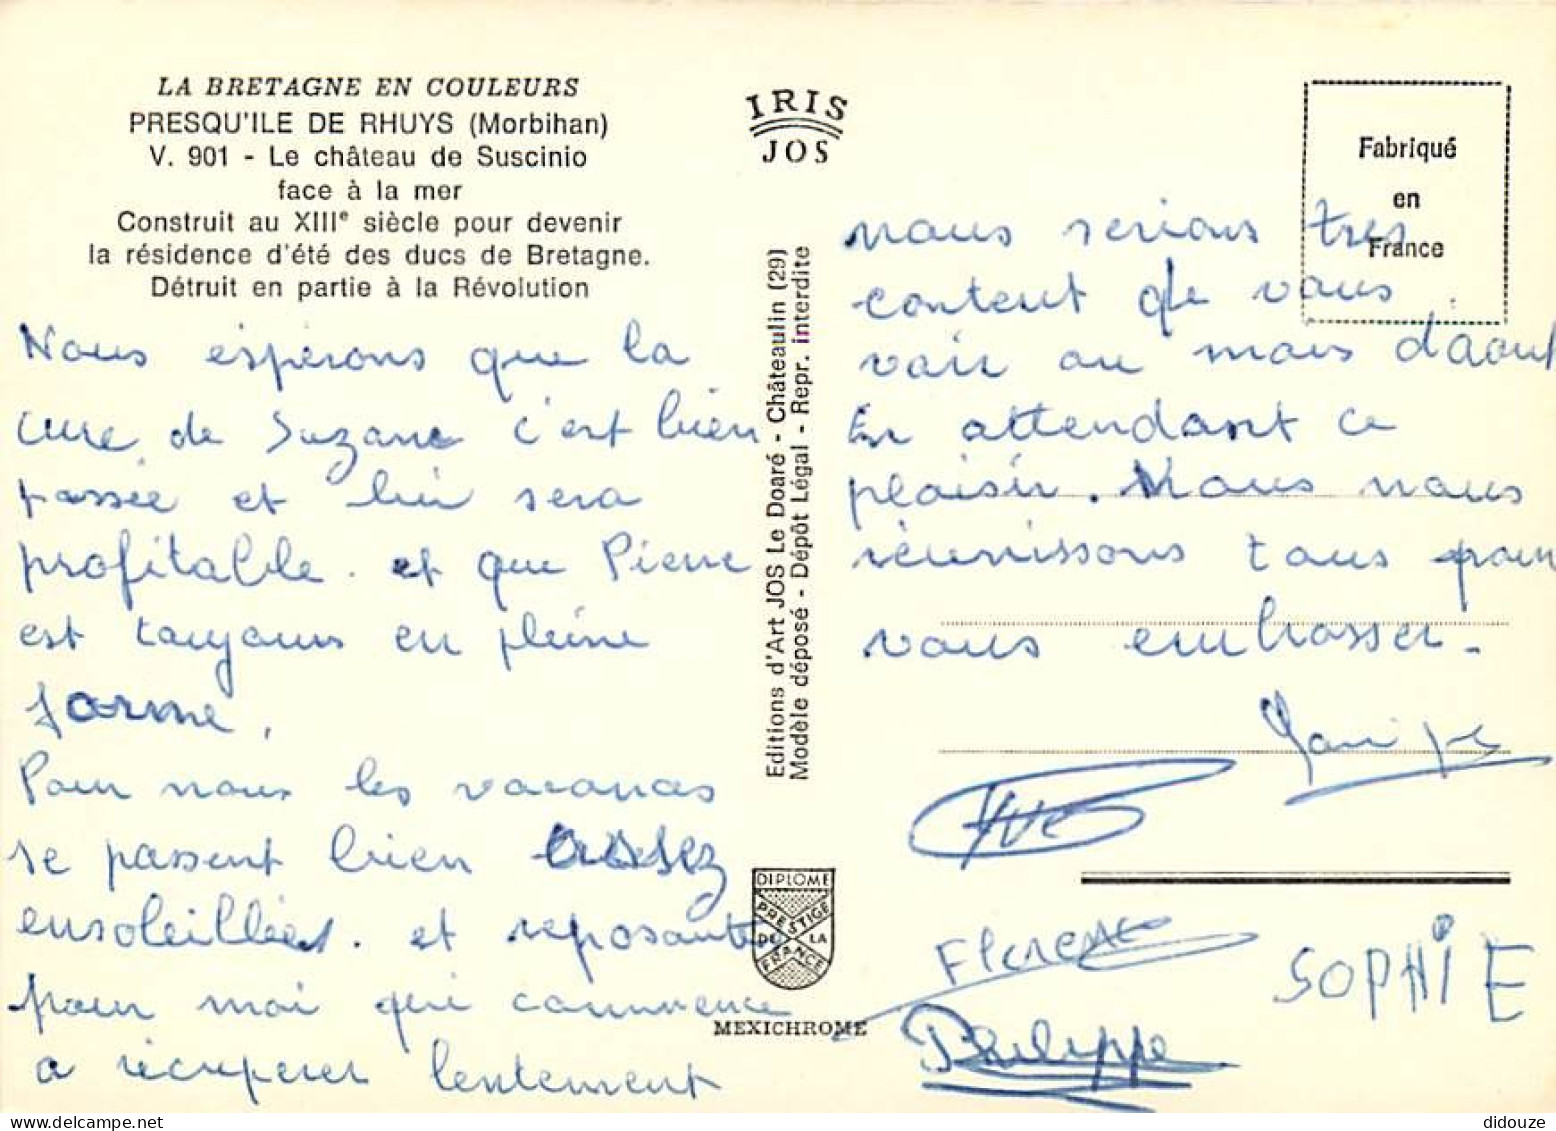 LA BRETAGNE EN COULEURS
PRESQU'ILE DE RHUYS (Morbihan)
V. 901 - Le château de Suscinio
face à la mer
Construit au XIIIe siècle pour devenir
la résidence d'été des ducs de Bretagne.
Détruit en partie à la Révolution
Nous espérons que la
cure de Suzane c'est bien
passée et lui sera
profitable. et que Pierre
est toujours en pleine
forme.
Pour nous les vacances
se passent bien assez
ensoleillées. et reposante
pour moi qui commence
a récuperer lentement
IRIS
JOS
Editions d'Art JOS Le Doaré - Châteaulin (29)
Modèle déposé - Dépôt Légal - Repr. interdite
DIPLOME
PRESTIGE
DE LA
FRANCE
MEXICHROME
Fabriqué
en
France
nous serions tres
content de vous
voir au mois d'aout
En attendant ce
plaisir. Nous nous
réunissons tous pour
vous embrasser.
Yves
Florence
SOPHIE
Philippe
didouze